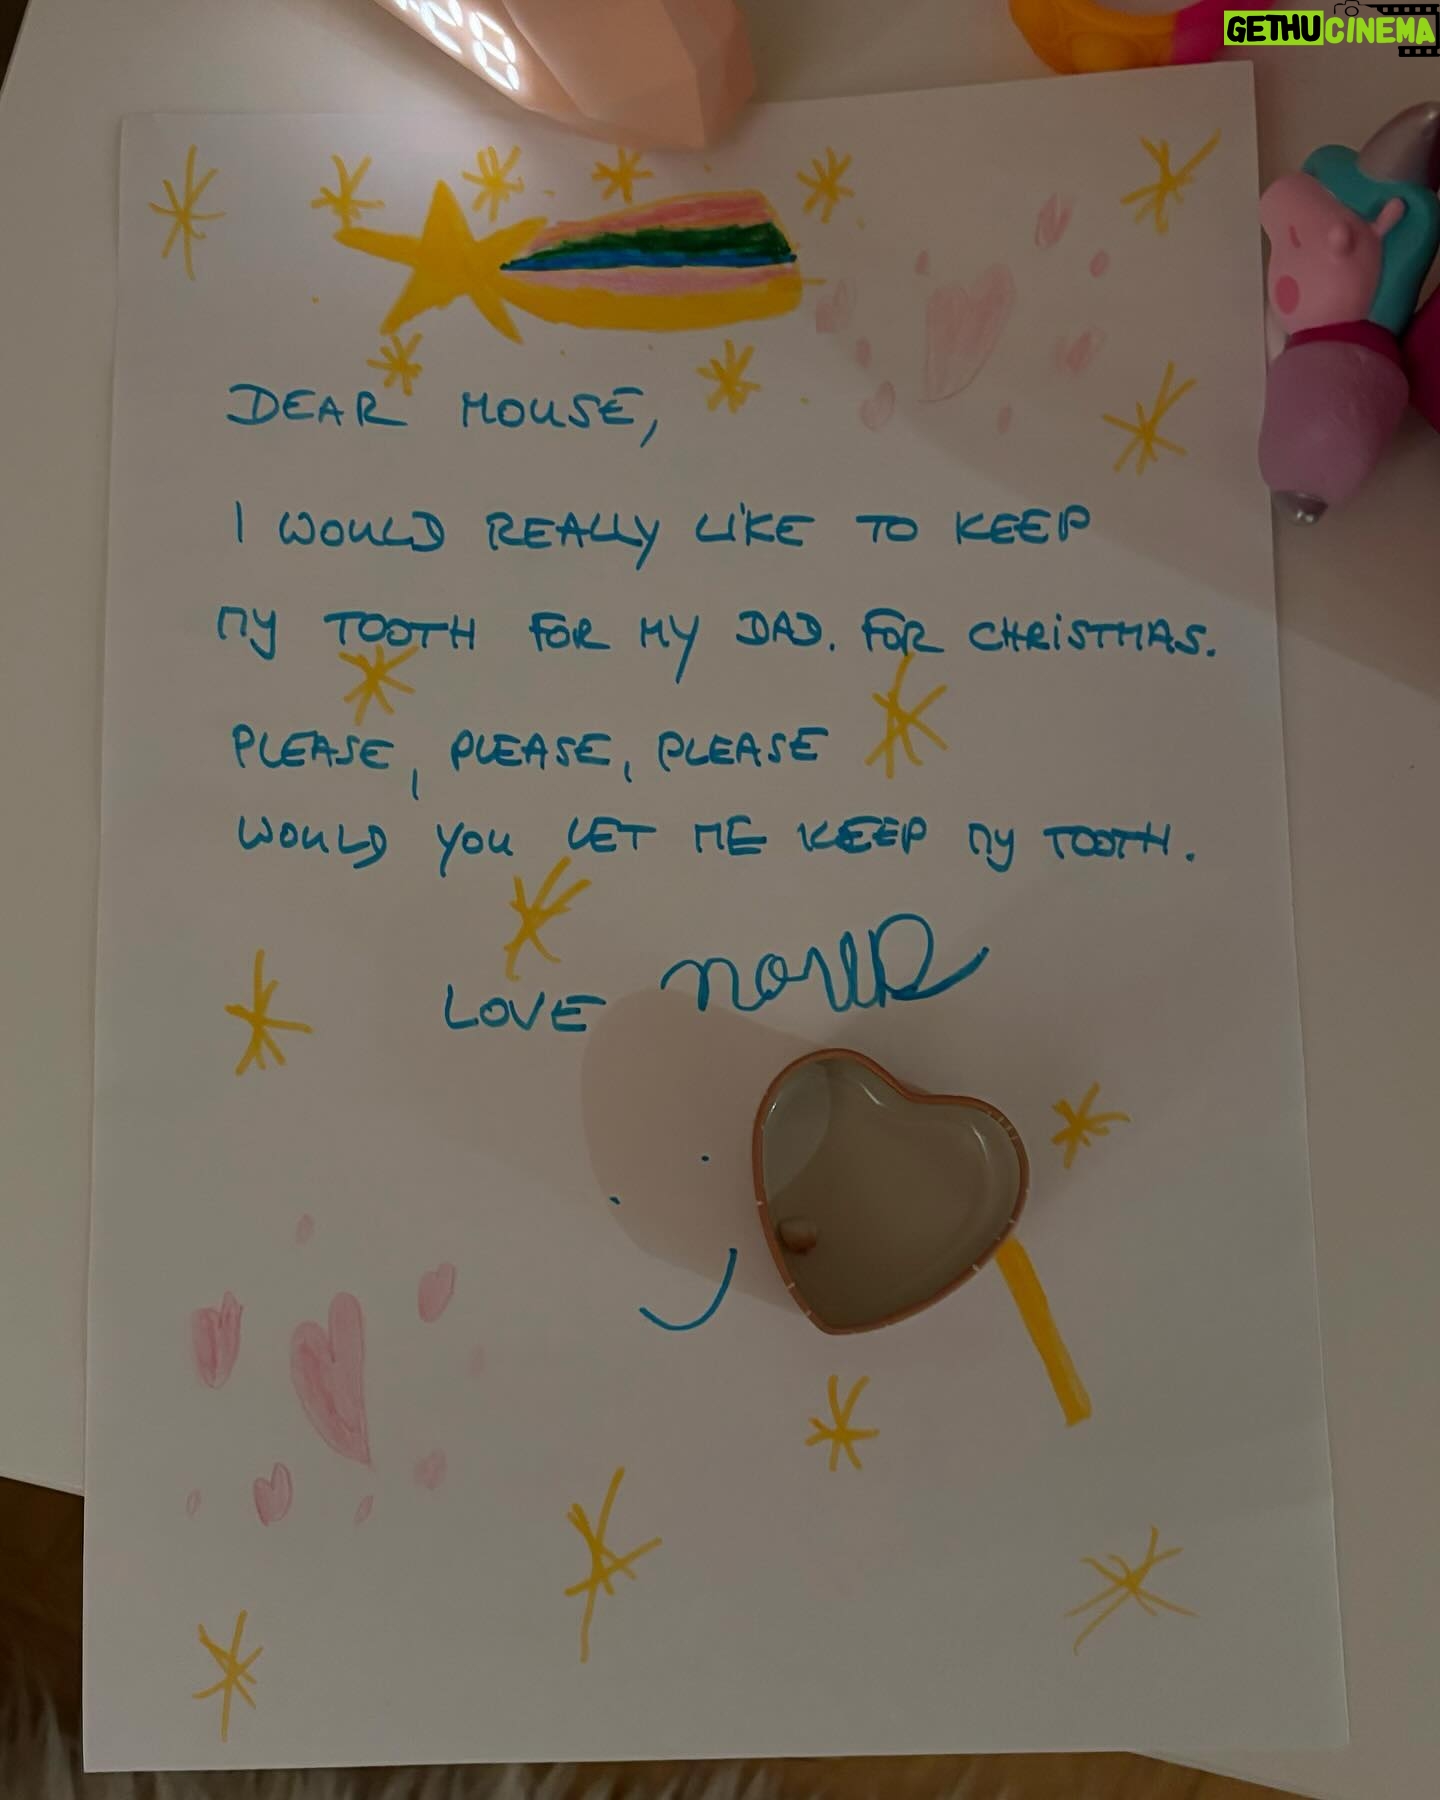 GETHUCINEMA
28
DEAR MOUSE,
I WOULD REALLY LIKE TO KEEP
MY TOOTH FOR MY DAD. FOR CHRISTMAS.
PLEASE, PLEASE, PLEASE
WOULD YOU LET ME KEEP MY TOOTH.
LOVE